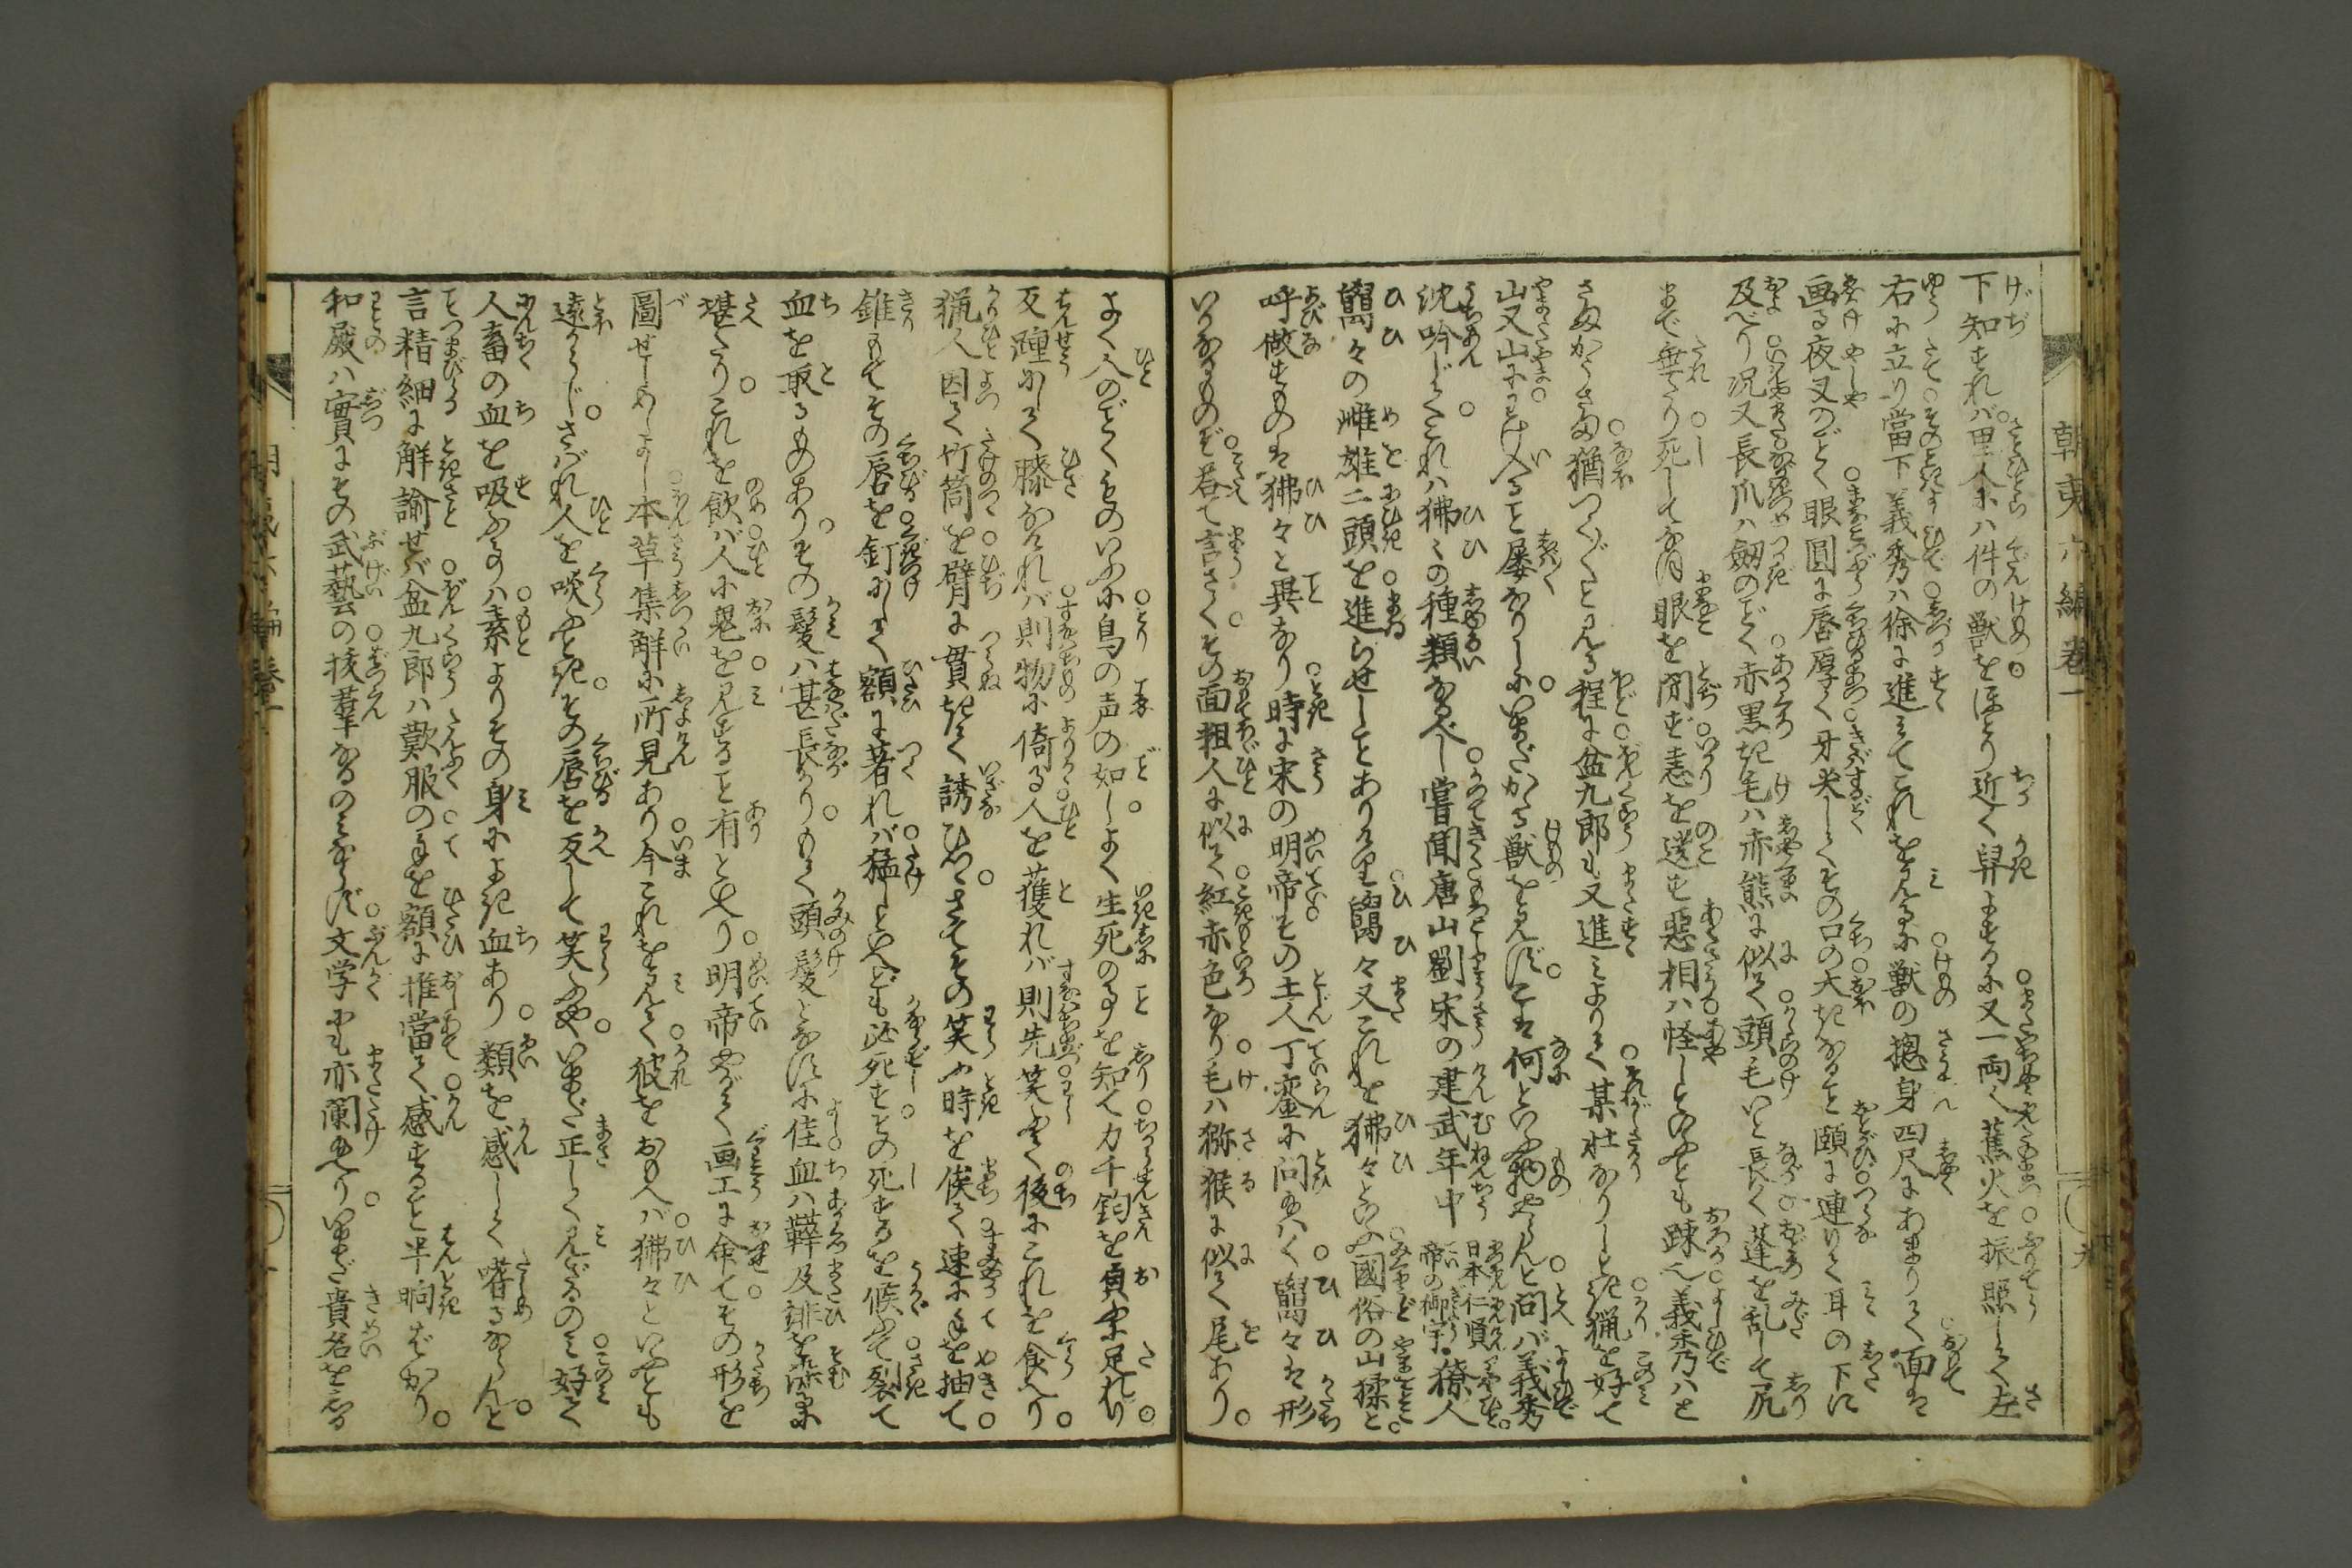 朝夷六編巻一
下知すれば里人等ハ件の獣をほとり近く舁よするに又一両人蕉火を振照して左
右に立り當下義秀ハ徐に進みてこれを見るに獣の摠身四尺にあまりて面は
画る夜叉のごとく眼圓に唇厚く牙尖くその口の大きなること頤に連りて耳の下に
及べり況又長爪ハ劔のごとく赤黒き毛ハ赤熊に似て頭毛いと長く蓬を乱して尻
まで垂たり死してなほ眼を閉ず恚を遺す悪相ハ怪しといふとも疎し義秀ハと
さまかうさま猶つくづくと見る程に盆九郎も又進みよりて某壮なりしとき猟を好て
山又山にわけ入ること屡なりしにいまだかゝる獣を見ずこは何といふ物やらんと問バ義秀
沈吟じてこれハ狒々の種類なるべし嘗聞唐山劉宋の建武年中日本仁賢帝の御宇獠人
𥜿々の雌雄二頭を進らせしことありけり𥜿々又これを狒々といふ國俗の山猱と
呼做すものは狒々と異なり時に宋の明帝その土人丁銮に問給はく𥜿々は形
いかなるものぞ答て言さくその面粗人に似て紅赤色なり毛ハ猕猴に似て尾あり
よく人のごとくものいふに鳥の声の如しよく生死の事を知る力千鈞を負に足れり
反踵にして膝なければ則物に倚る人を獲れバ則先笑ふて後にこれを食へり
猟人因て竹筒を臂に貫きて誘ひつさてその笑ふ時を俟て速に手を抽て
錐もてその唇を釘にして額に著れバ猛しといへども必死すその死するを候ふて裂て
血を取るものありその髪ハ甚長かりもて頭髪となすに佳血ハ鞾及緋を染るに
堪たりこれを飲バ人に鬼を見すること有といへり明帝やがて画工に命てその形を
圖せしめしよし本草集解に所見あり今これをもて彼をおもへバ狒々といふとも
遠からじさバれ人を啖ふときその唇を反して笑ふやいまだ正しく見ざるのみ好て
人畜の血を吸ふるハ素よりその身によき血あり類を感して嗜るならんと
言精細に解諭せバ盆九郎ハ歎服の手を額に推當て感ずること半晌ばかり
和殿ハ實にその武藝の抜羣なるのみならず文学にも亦闌給へりいまだ貴名をしる